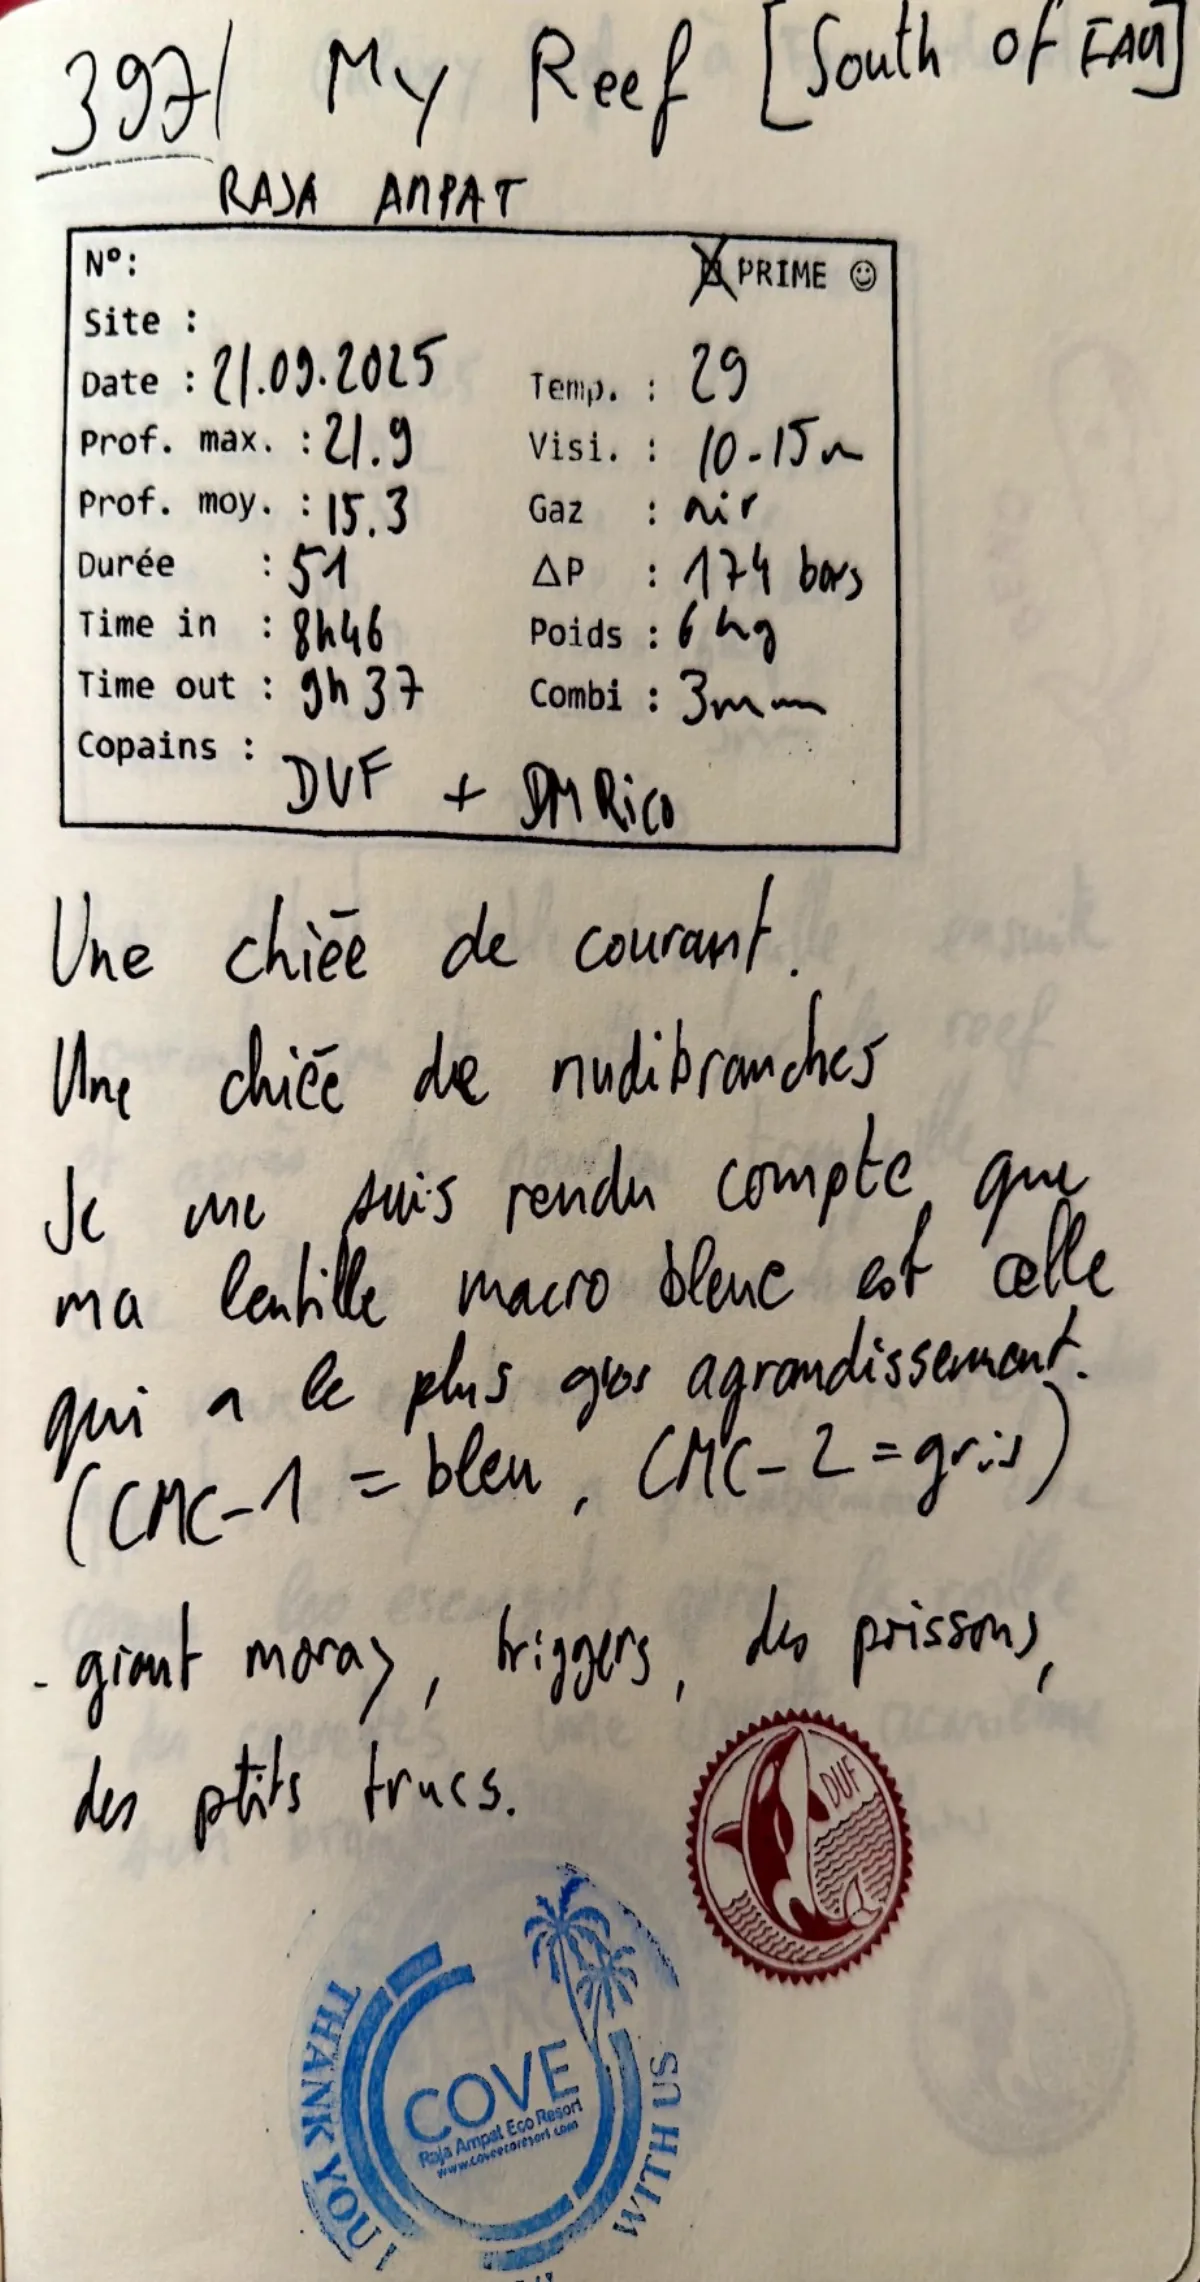 397/ My Reef [South of FAM]
RAJA AMPAT
N°:
PRIME ☺
Site :
Date : 21.09.2025 Temp. : 29
Prof. max. : 21.9 Visi. : 10-15m
Prof. moy. : 15.3 Gaz : air
Durée : 51 ΔP : 174 bars
Time in : 8h46 Poids : 6 kg
Time out : 9h37 Combi : 3mm
Copains : DUF + DM Rico
Une chiée de courant.
Une chiée de nudibranches
Je me suis rendu compte que
ma lentille macro bleue est celle
qui a le plus gros agrandissement.
(CMC-1 = bleu, CMC-2 = gris)
- giant moray, triggers, des poissons,
des ptits trucs.
DUF
COVE
Raja Ampat Eco Resort
www.coveecoresort.com
THANK YOU
WITH US